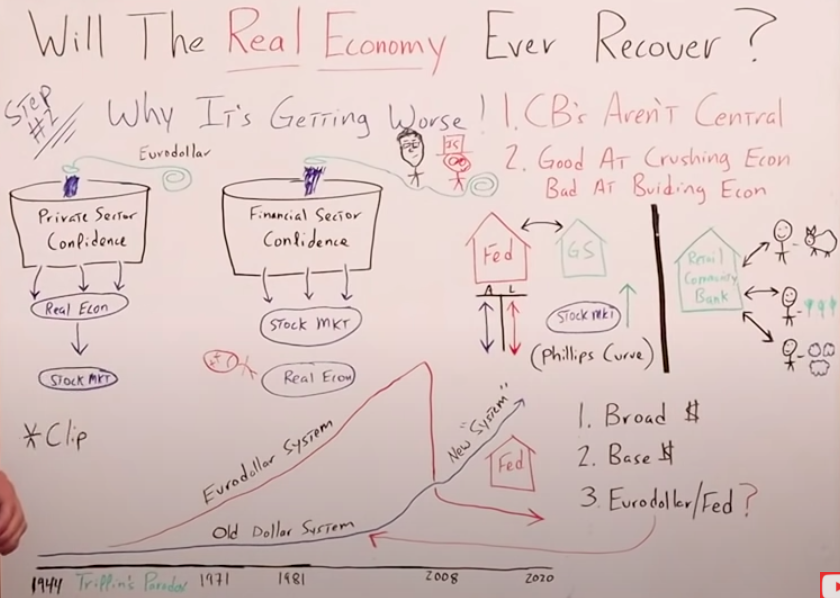 Will The Real Economy Ever Recover?
STEP #2
Why It's Getting Worse!
1. CB's Aren't Central
2. Good At Crushing Econ
Bad At Buiding Econ
Eurodollar
Private Sector
Confidence
Real Econ
Stock Mkt
Financial Sector
Confidence
Stock Mkt
Real Econ
Fed
GS
A L
Stock Mkt
(Phillips Curve)
Retail
Community
Bank
*Clip
Eurodollar System
Old Dollar System
New "System"
Fed
1. Broad $
2. Base $
3. Eurodollar/Fed?
1944 Triffin's Paradox 1971 1981 2008 2020